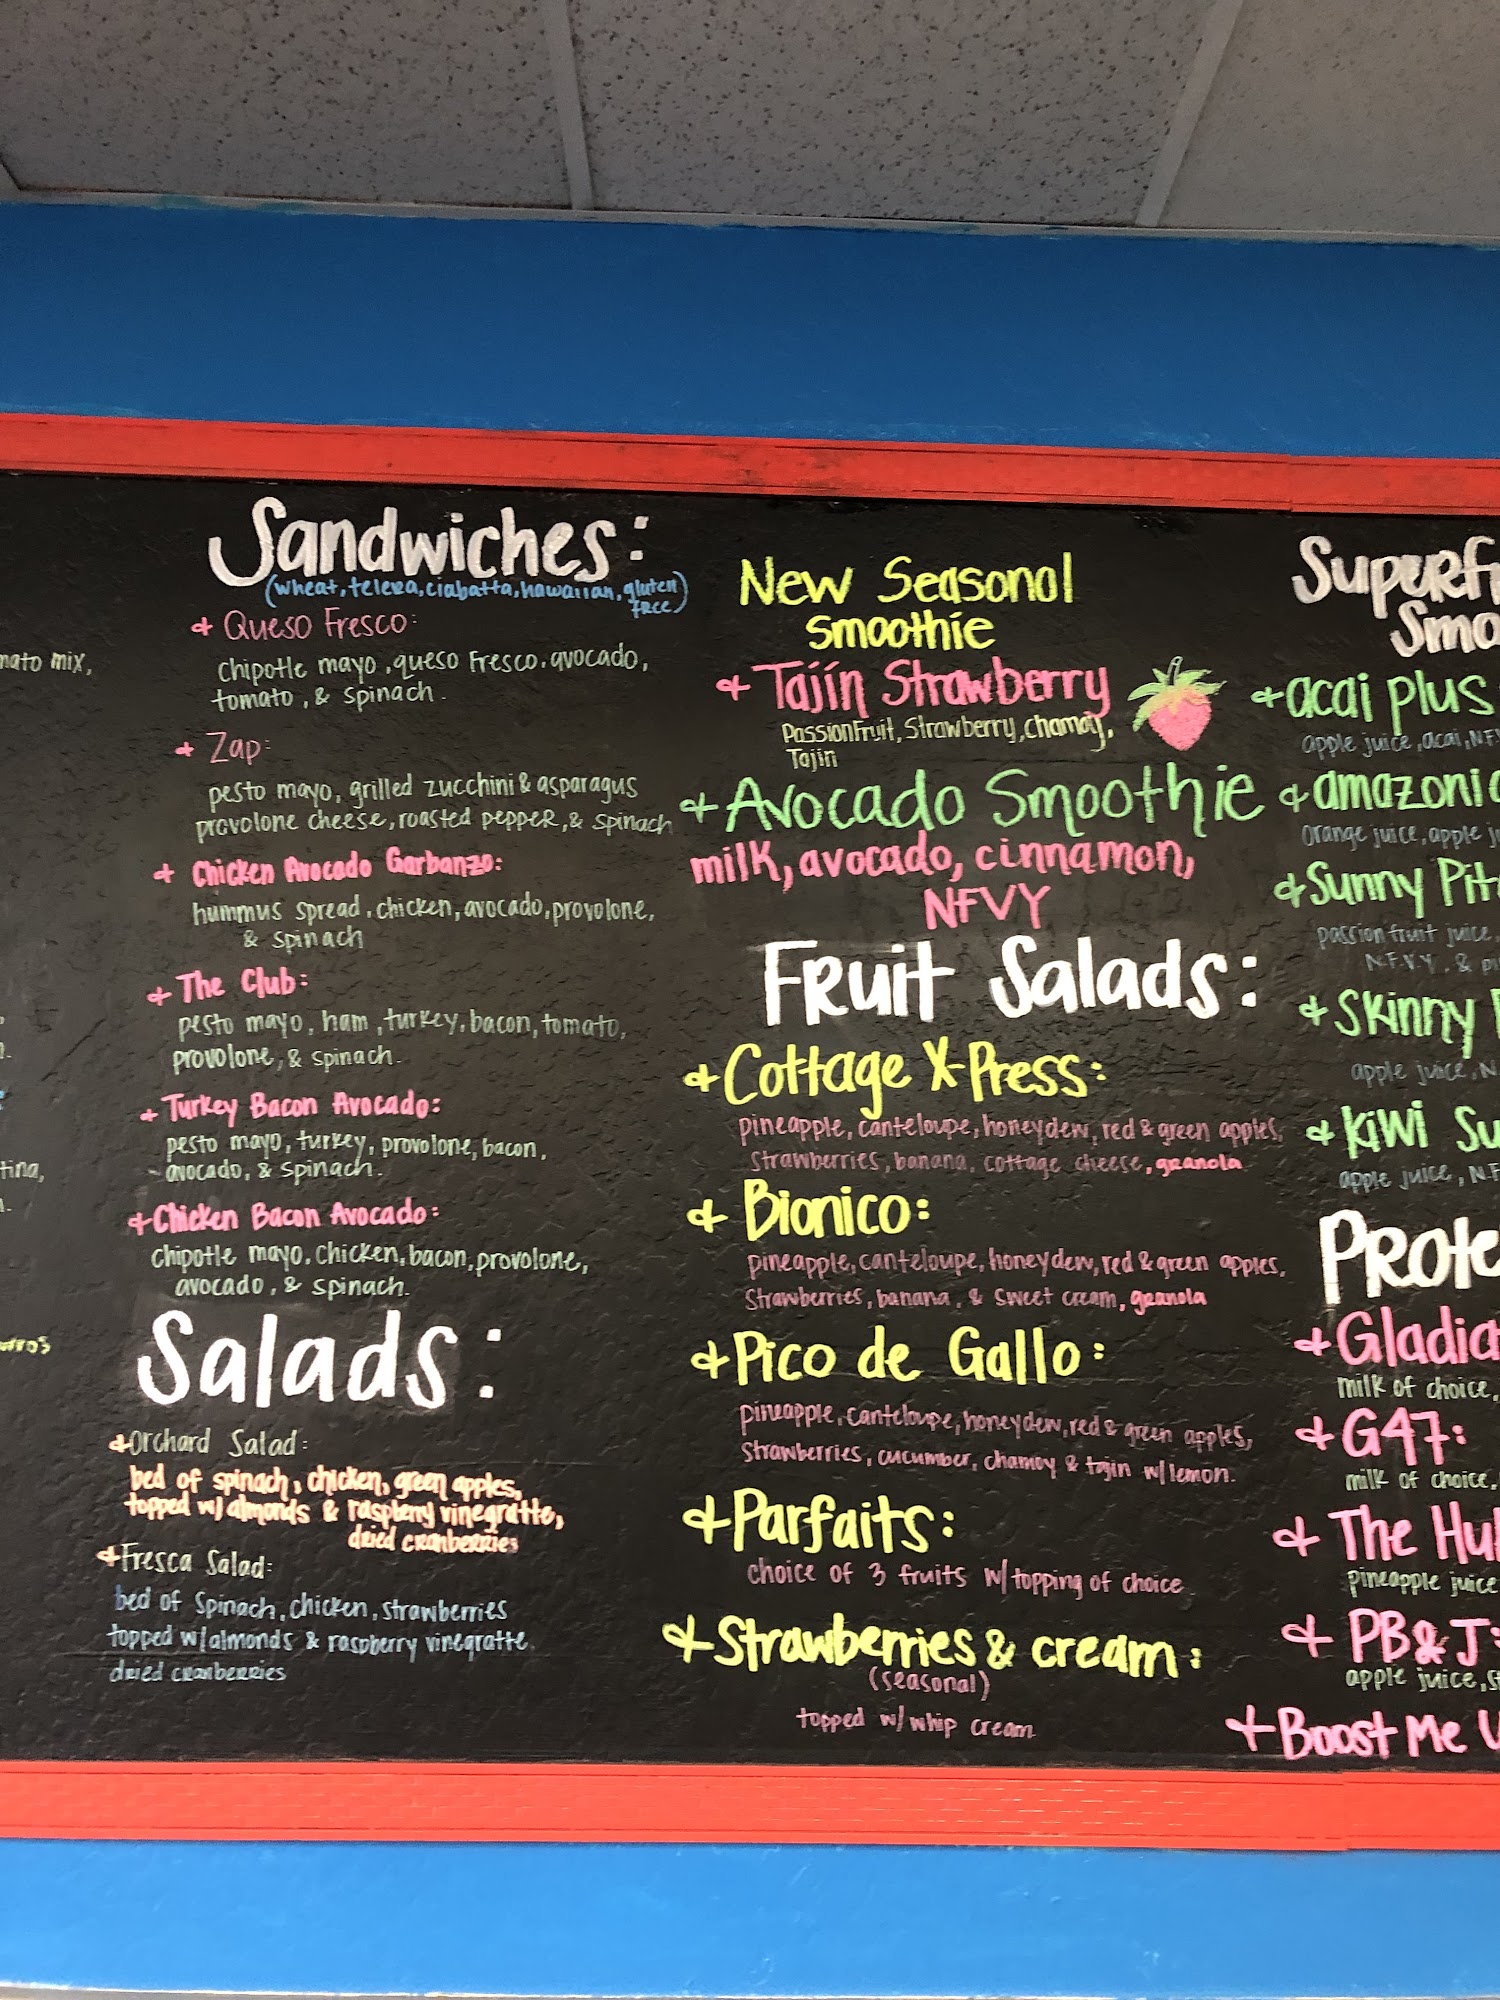 nato mix,
tina,
urros
Sandwiches:
(wheat, telera, ciabatta, hawaiian, gluten free)
+ Queso Fresco:
chipotle mayo, queso fresco, avocado,
tomato, & spinach.
+ Zap:
pesto mayo, grilled zucchini & asparagus
provolone cheese, roasted pepper, & spinach
+ Chicken Avocado Garbanzo:
hummus spread, chicken, avocado, provolone,
& spinach
+ The Club:
pesto mayo, ham, turkey, bacon, tomato,
provolone, & spinach.
+ Turkey Bacon Avocado:
pesto mayo, turkey, provolone, bacon,
avocado, & spinach.
+ Chicken Bacon Avocado:
chipotle mayo, chicken, bacon, provolone,
avocado, & spinach.
Salads:
+ Orchard Salad:
bed of spinach, chicken, green apples,
topped w/ almonds & raspberry vinegratte,
dried cranberries
+ Fresca Salad:
bed of spinach, chicken, strawberries
topped w/ almonds & raspberry vinegratte.
dried cranberries
New Seasonal
Smoothie
+ Tajín Strawberry
Passionfruit, Strawberry, chamoy,
Tajin
+ Avocado Smoothie
milk, avocado, cinnamon,
NFVY
Fruit Salads:
+ Cottage X-Press:
pineapple, canteloupe, honeydew, red & green apples,
strawberries, banana, cottage cheese, granola
+ Bionico:
pineapple, canteloupe, honeydew, red & green apples,
strawberries, banana, & sweet cream, granola
+ Pico de Gallo:
pineapple, canteloupe, honeydew, red & green apples,
strawberries, cucumber, chamoy & tajin w/ lemon.
+ Parfaits:
choice of 3 fruits w/ topping of choice
+ Strawberries & cream:
(seasonal)
topped w/ whip cream
Superf
Smo
+ acai plus
apple juice, acai, NF
+ amazonic
orange juice, apple j
+ Sunny Pit
passion fruit juice,
N.F.V.Y. & pi
+ Skinny
apple juice, N
+ Kiwi Su
apple juice, N.F
Prote
+ Gladia
milk of choice,
+ G47:
milk of choice,
+ The Hul
pineapple juice
+ PB&J:
apple juice, st
+ Boost Me U